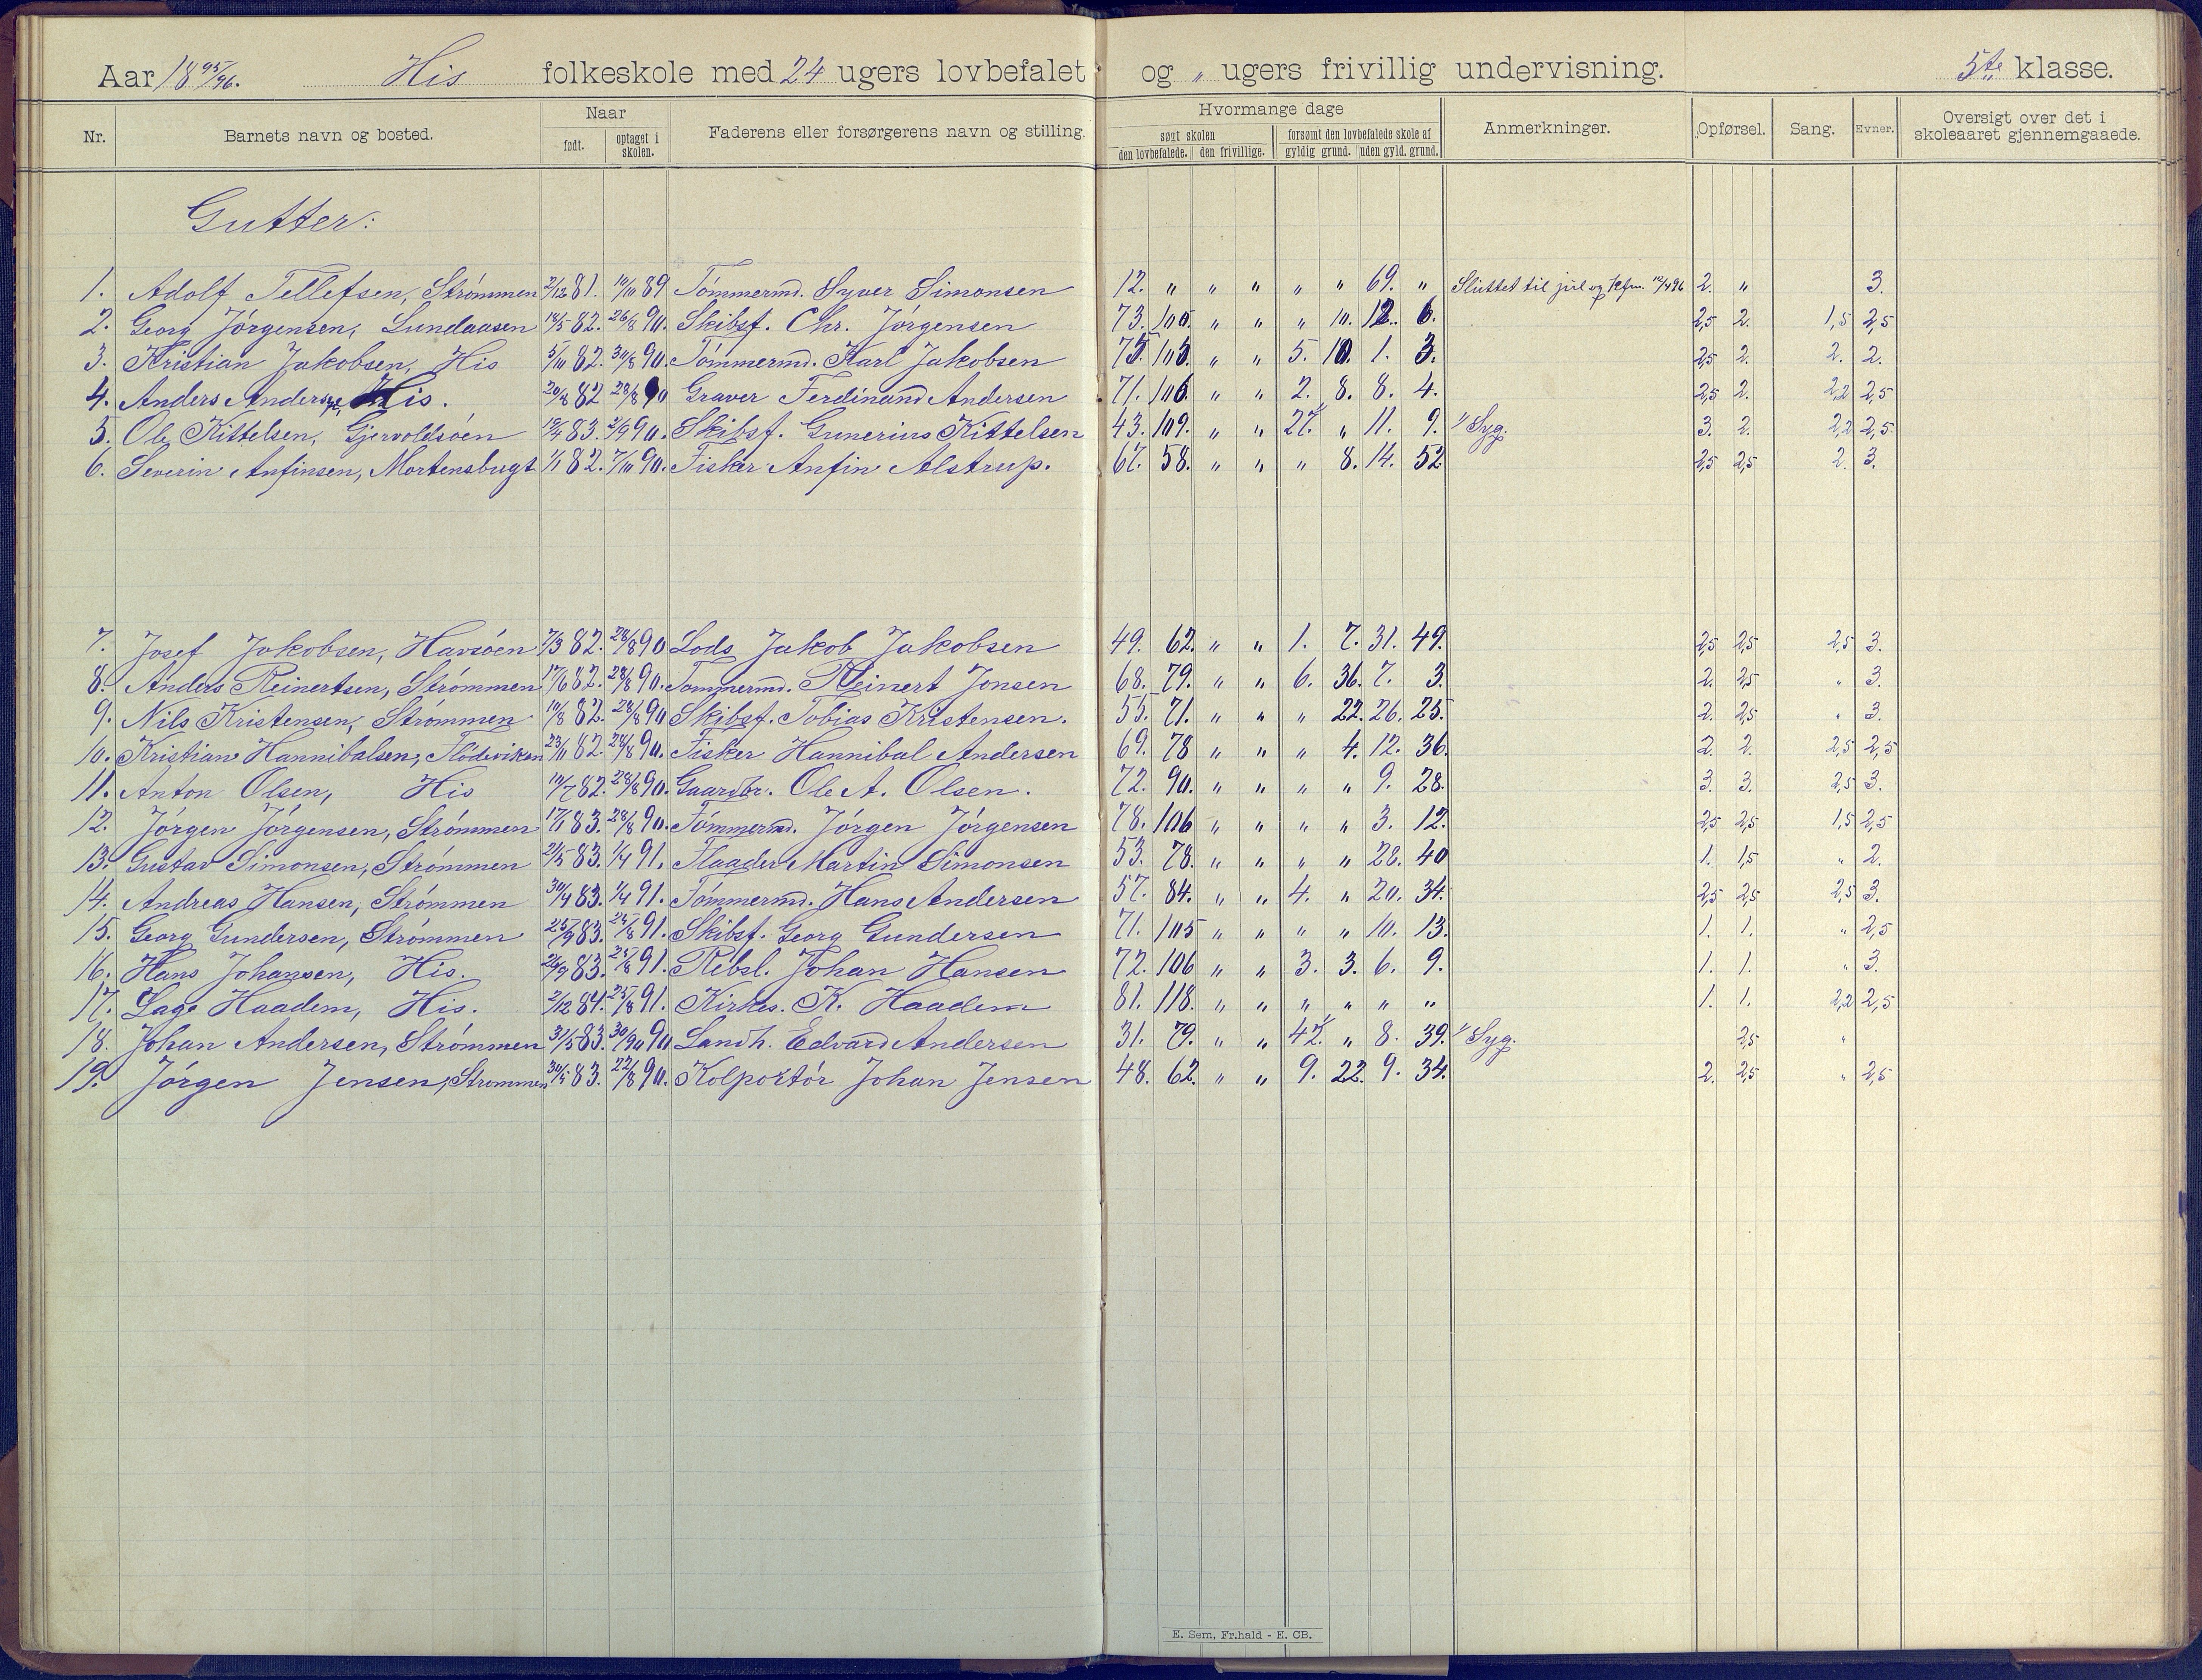 Aar 18 95/96. His folkeskole med 24 ugers lovbefalet og " ugers frivillig undervisning. 5te klasse.
Nr. Barnets navn og bosted. Naar født. optaget i skolen. Faderens eller forsørgerens navn og stilling. Hvormange dage søgt skolen den lovbefalede. den frivillige. forsømt den lovbefalede skole af gyldig grund. uden gyld. grund. Anmerkninger. Opførsel. Sang. Evner. Oversigt over det i skoleaaret gjennemgaaede.
Gutter:
1. Adolf Tellefsen, Strømmen 2/12 81. 14/10 89 Tømmermd. Syver Simonsen 12. " " " " " 69. " Sluttet til jul og kfm. 12/4 96 2. " 3.
2. Georg Jørgensen, Lundaasen 14/5 82. 26/8 90. Skibsf. Chr. Jørgensen 73. 100. " " " 10. 12. 6. 2,5 2. 1,5 2,5
3. Kristian Jakobsen, His 5/10 82. 30/8 90. Tømmermd. Karl Jakobsen 75. 105. " " 5. 10. 1. 3. 2,5 2. 2. 2.
4. Anders Andersen, His. 20/8 82 28/8 90 Graver Ferdinand Andersen 71. 106. " " 2. 8. 8. 4. 2,5 2. 2,2 2,5
5. Ole Kittelsen, Gjervoldsøen 12/4 83. 2/9 90. Skibsf. Gunerius Kittelsen 43. 109. " " 27. 1/ " 11. 9. 1/ Syg. 3. 2. 2,2 2,5
6. Severin Anfinsen, Mortensbugt 1/1 82. 7/10 90. Fisker Anfin Alstrup. 67. 58. " " " 8. 14. 52 2,5 2,5 2. 3.
7. Josef Jakobsen, Havsøen 7/3 82. 28/8 90 Lods Jakob Jakobsen 49. 62. " " 1. 7. 31. 49. 2,5 2,5 2,5 3.
8. Anders Reinertsen, Strømmen 17/6 82. 28/8 90. Tømmermd. Reinert Jonsen 68. 79. " " 6. 36. 7. 3. 2. 2,5 " 3.
9. Nils Kristensen, Strømmen 10/8 82. 28/8 90 Skibsf. Tobias Kristensen. 55. 71. " " " 22. 26. 25. 2. 2,5 " 3.
10. Kristian Hannibalsen, Flødeviken 23/11 82. 28/8 90. Fisker Hannibal Andersen 69. 78 " " " 4. 12. 36. 2. 2. 2,5 2,5
11. Anton Olsen, His 10/7 82. 28/8 90. Gaardbr. Ole A. Olsen. 72. 90. " " " " 9. 28. 3. 3. 2,5 3.
12. Jørgen Jørgensen, Strømmen 17/1 83. 28/8 90. Tømmermd. Jørgen Jørgensen 78. 106 " " " " 3. 12. 2,5 2,5 1,5 2,5
13. Gustav Simonsen, Strømmen 2/5 83. 1/4 91. Flaader Martin Simonsen 53. 78. " " " " 28. 40 1. 1,5 " 2.
14. Andreas Hansen, Strømmen 30/4 83. 1/4 91. Tømmermd. Hans Andersen 57. 84. " " 4. " 20. 34. 2,5 2,5 2,5 3.
15. Georg Gundersen, Strømmen 25/9 83. 25/8 91. Skibsf. Georg Gundersen 71. 105 " " " " 10. 13. 1. 1. " 2,5
16. Hans Johansen, His. 26/9 83. 25/8 91. Rebsl. Johan Hansen 72. 106 " " 3. 3. 6. 9. 1. 1. " 3.
17. Lage Haadem, His. 2/12 84. 25/8 91. Kirkes. K. Haadem 81. 118. " " " " " " 1. 1. 2,2 2,5
18. Johan Andersen, Strømmen 31/5 83. 30/9 90 Landh. Edvard Andersen 31. 79. " " 42. 1/ " 8. 39. 1/ Syg. 2,5 "
19. Jørgen Jensen, Strømmen 30/5 83. 22/8 90. Kolportør Johan Jensen 48. 62. " " 9. 22. 9. 34. 2. 2,5 " 2,5
E. Sem, Fr.hald - E. CB.